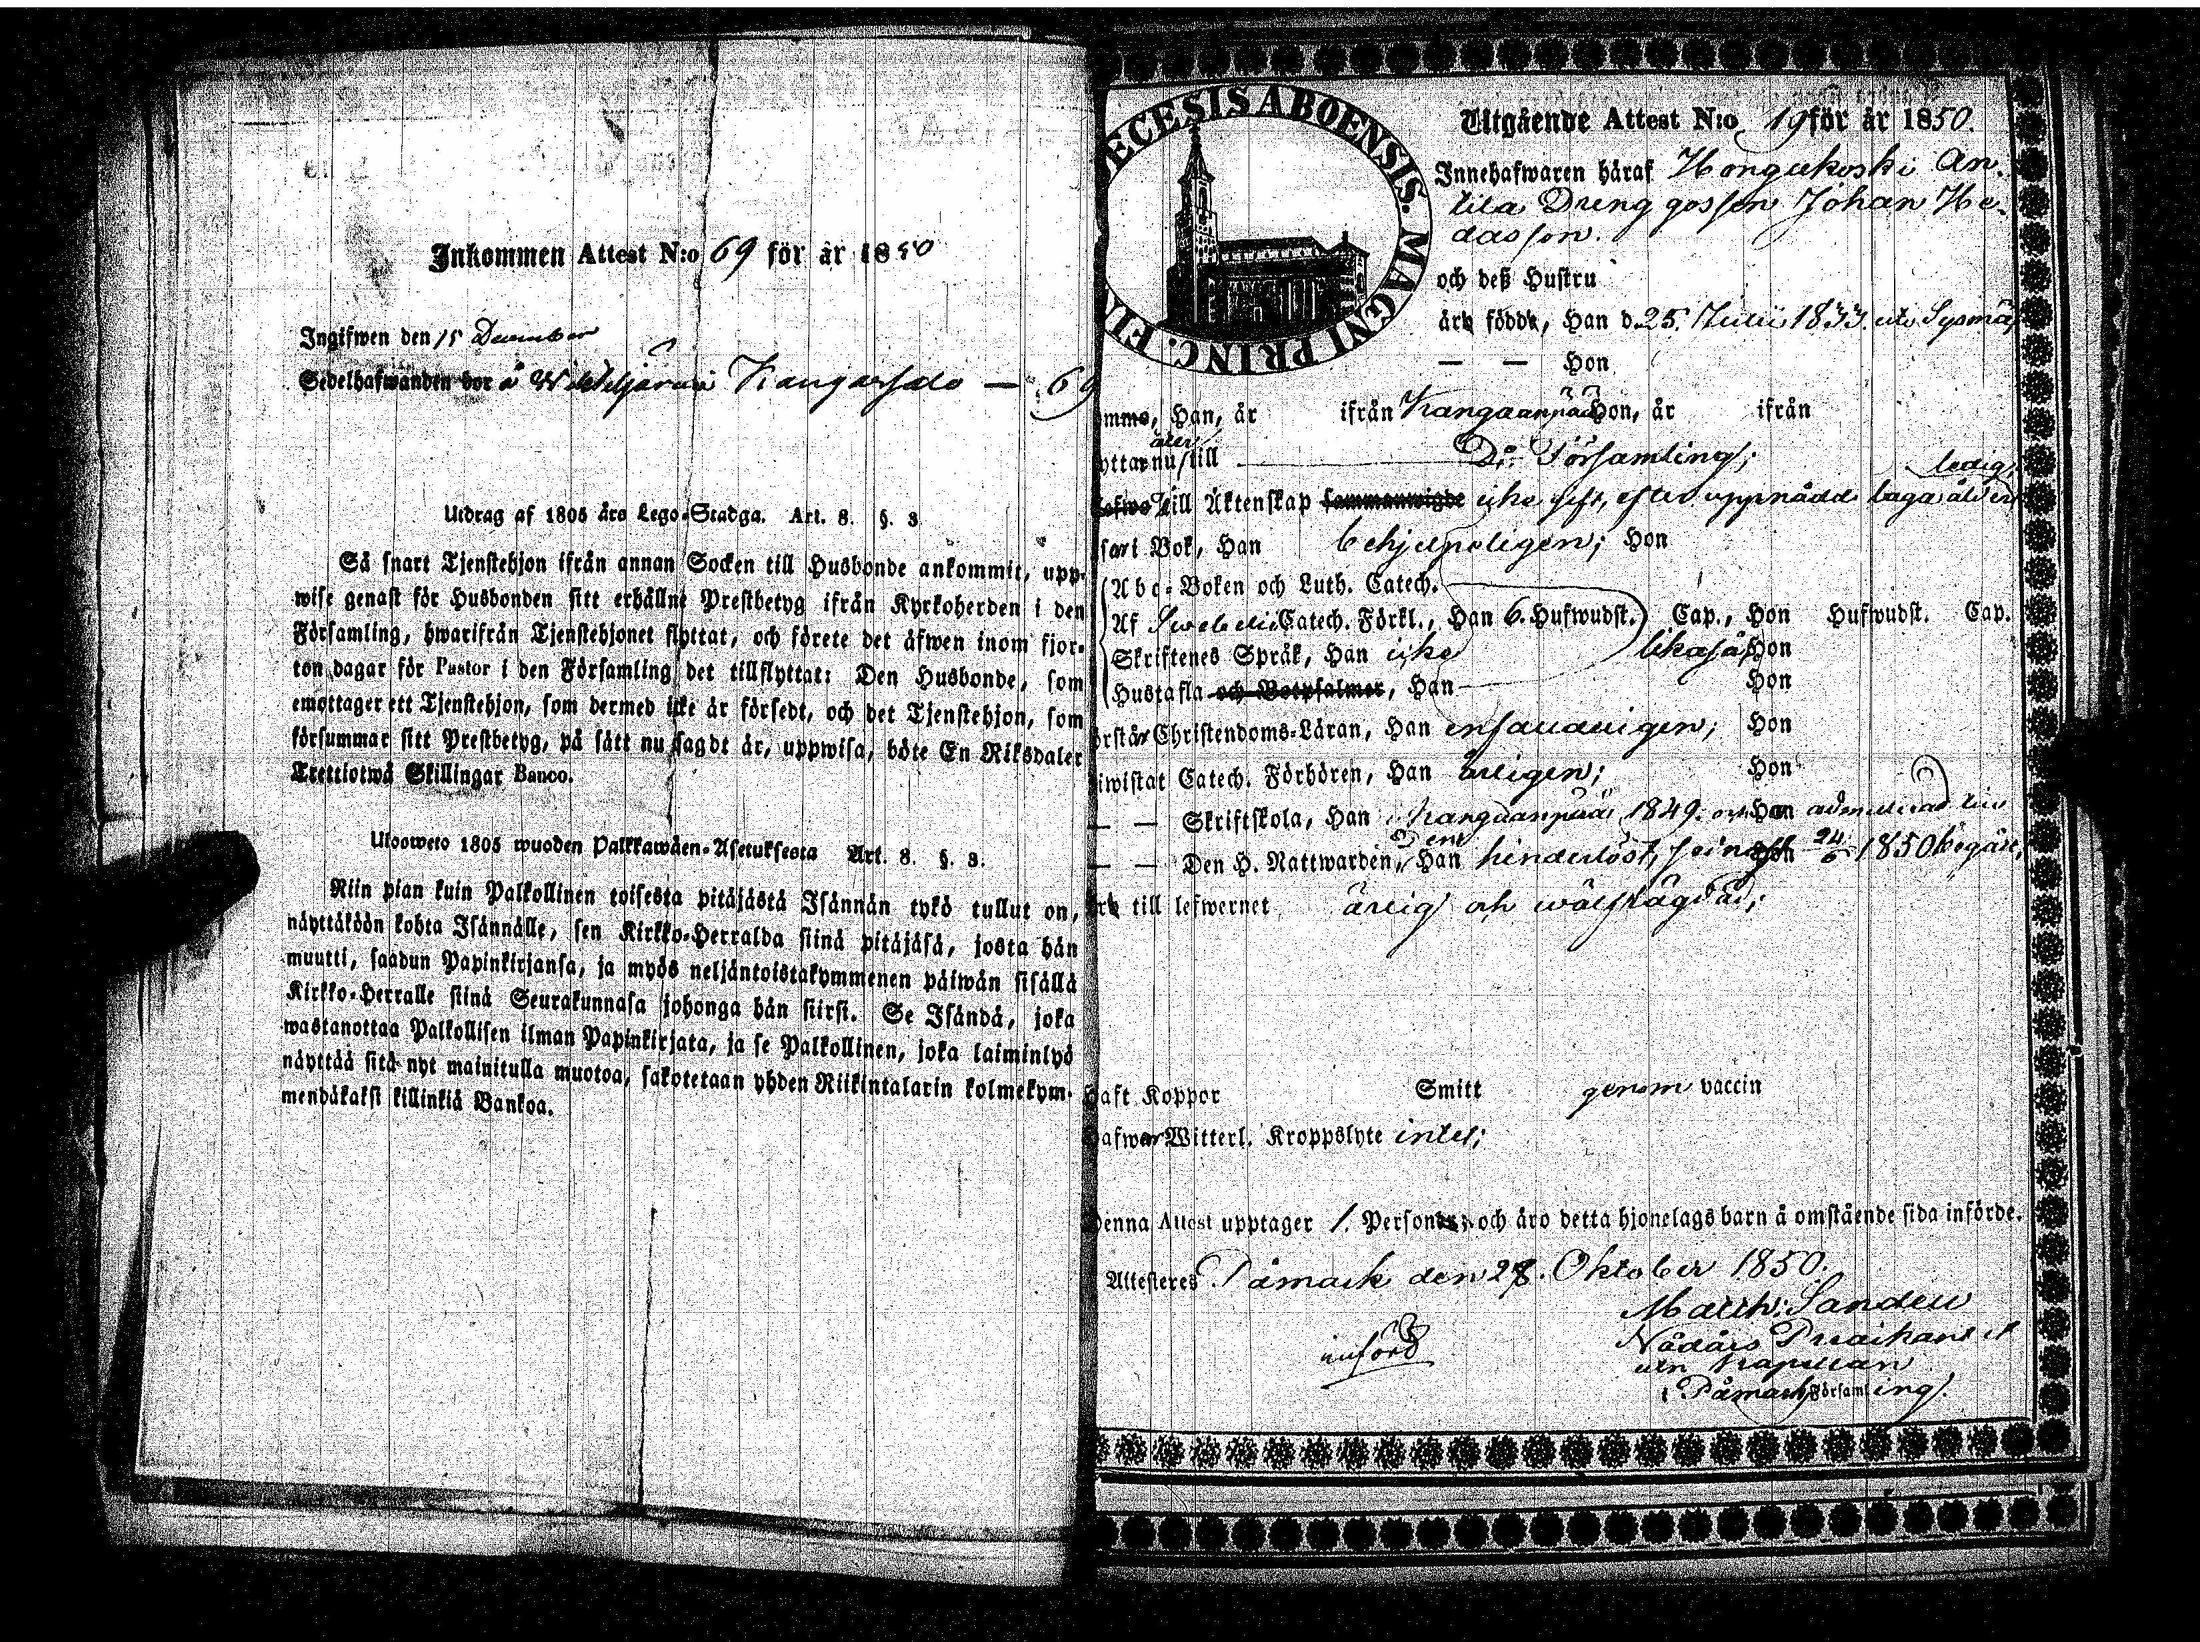 Inkommen Attest N:o 69 för år 1850
Ingifwen den 15 December
Sedelhafwanden bor å Kangarsalo — 69
Utdrag af 1805 års Lego-Stadga. Art. 8. §. 3.
Så snart Tjenstehjon ifrån annan Socken till Husbonde ankommit, upp-
wise genast för Husbonden sitt erhållne Prestbetyg ifrån Kyrkoherden i den
Församling, hwarifrån Tjenstehjonet flyttat, och förete det äfwen inom fjor-
ton dagar för Pastor i den Församling det tillflyttat: Den Husbonde, som
emottager ett Tjenstehjon, som dermed icke är försedt, och det Tjenstehjon, som
försummar sitt Prestbetyg, på sätt nu sagdt är, uppwisa, böte En Riksdaler
Trettiotwå Skillingar Banco.
Ulosweto 1805 wuoden Palkkawäen-Asetuksesta Art. 8. §. 3.
Niin pian kuin Palkollinen toisesta pitäjästä Isännän tykö tullut on,
näyttäköön kohta Isännälle, sen Kirkko-Herralda siinä pitäjäsä, josta hän
muutti, saadun Papinkirjansa, ja myös neljäntoistakymmenen päiwän sisällä
Kirkko-Herralle siinä Seurakunnasa johonga hän siirsi. Se Isändä, joka
wastanottaa Palkollisen ilman Papinkirjata, ja se Palkollinen, joka laiminlyö
näyttää sitä nyt mainitulla muotoa, sakotetaan yhden Riikintalarin kolmekym-
mendäkaksi killinkiä Bankoa.
ECESIS ABOENSIS. MAGNI PRINC. FIN
Utgående Attest N:o 19 för år 1850.
Innehafwaren häraf Hongukoski An-
tila Dreng gossen Johan He-
dasson.
och deß Hustru
äro födde, Han d. 25. Julii 1833. uti Sysmä,
— — Hon
omme, Han, år ifrån Kangaanpää Hon, år ifrån
åter
yttar nu till Di: Församling; ledig
till Äktenskap sammanwigde icke gift, efter uppnådd laga ålder
i Bok, Han behjelpeligen; Hon
Abc-Boken och Luth. Catech.
Af Swebelii Catech. Förkl., Han 6. Hufwudst. Cap., Hon Hufwudst. Cap.
Skriftenes Språk, Han icke likaså; Hon
Hustafla och Botpsalmer, Han Hon
örstår Christendoms-Läran, Han enfaldeligen; Hon
iwistat Catech. Förhören, Han årligen; Hon
— — Skriftskola, Han i Kangaanpää 1849. och Hon admitterad till
— — Den H. Nattwarden, den Han hinderlöst, senast Hon 24/6 1850 begått,
till lefwernet ärlig och wälfrägdad;
Haft Koppor Smitt genom vaccin
Hafwer Witterl. Kroppslyte intet;
Denna Attest upptager 1. Person och äro detta hjonelags barn å omstående sida införde.
Attesteres Påmark den 28. Oktober 1850.
Matth: Sandell
Nådårs Predikant
Kapellan
införd
i Påmark Församling.